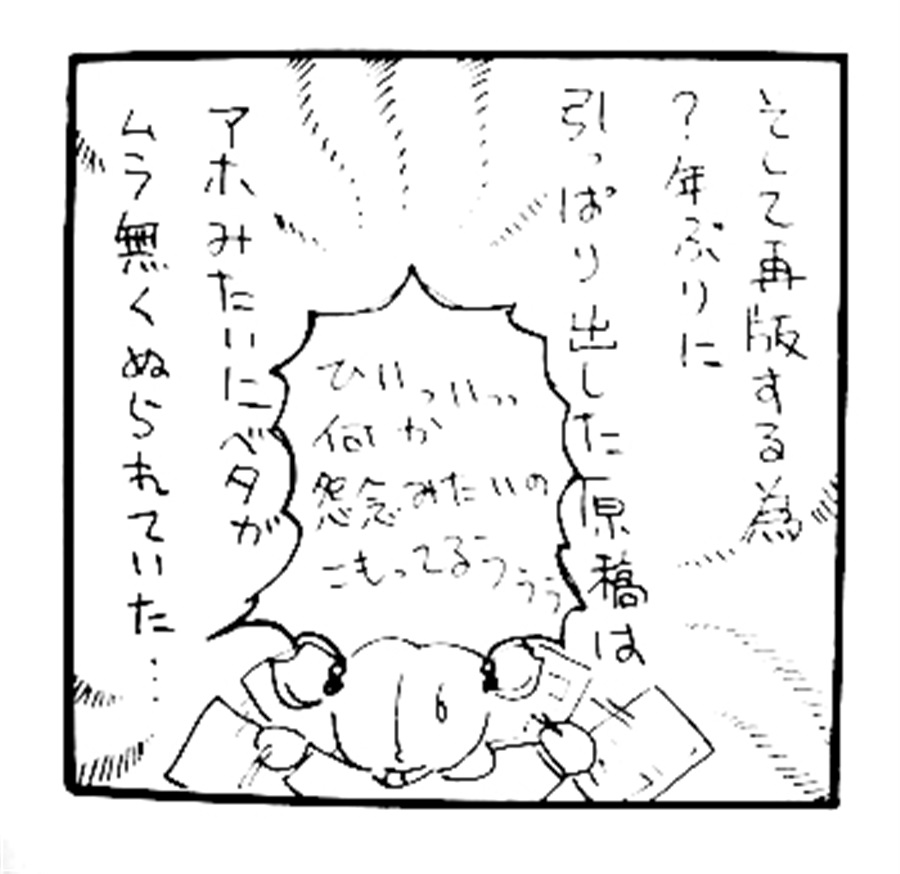 そして再版する為
？年ぶりに
引っぱり出した原稿は
ひいっいっっ
何か
怨念みたいの
こもってるぅぅぅぅ
アホみたいにベタが
ムラ無くぬられていた…